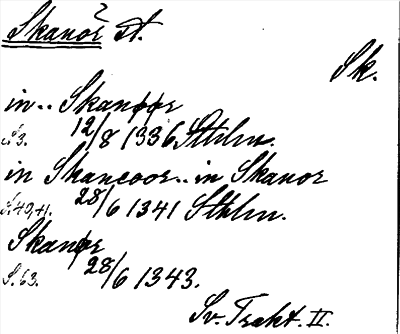 Skanör st.
Sk.
in.. Skanøør
S.3. 12/8 1336 Sthlm.
in Skancoor.. in Skanor
S.40,41. 28/6 1341 Sthlm.
Skanør
S.63. 28/6 1343.
Sv. Trakt. II.